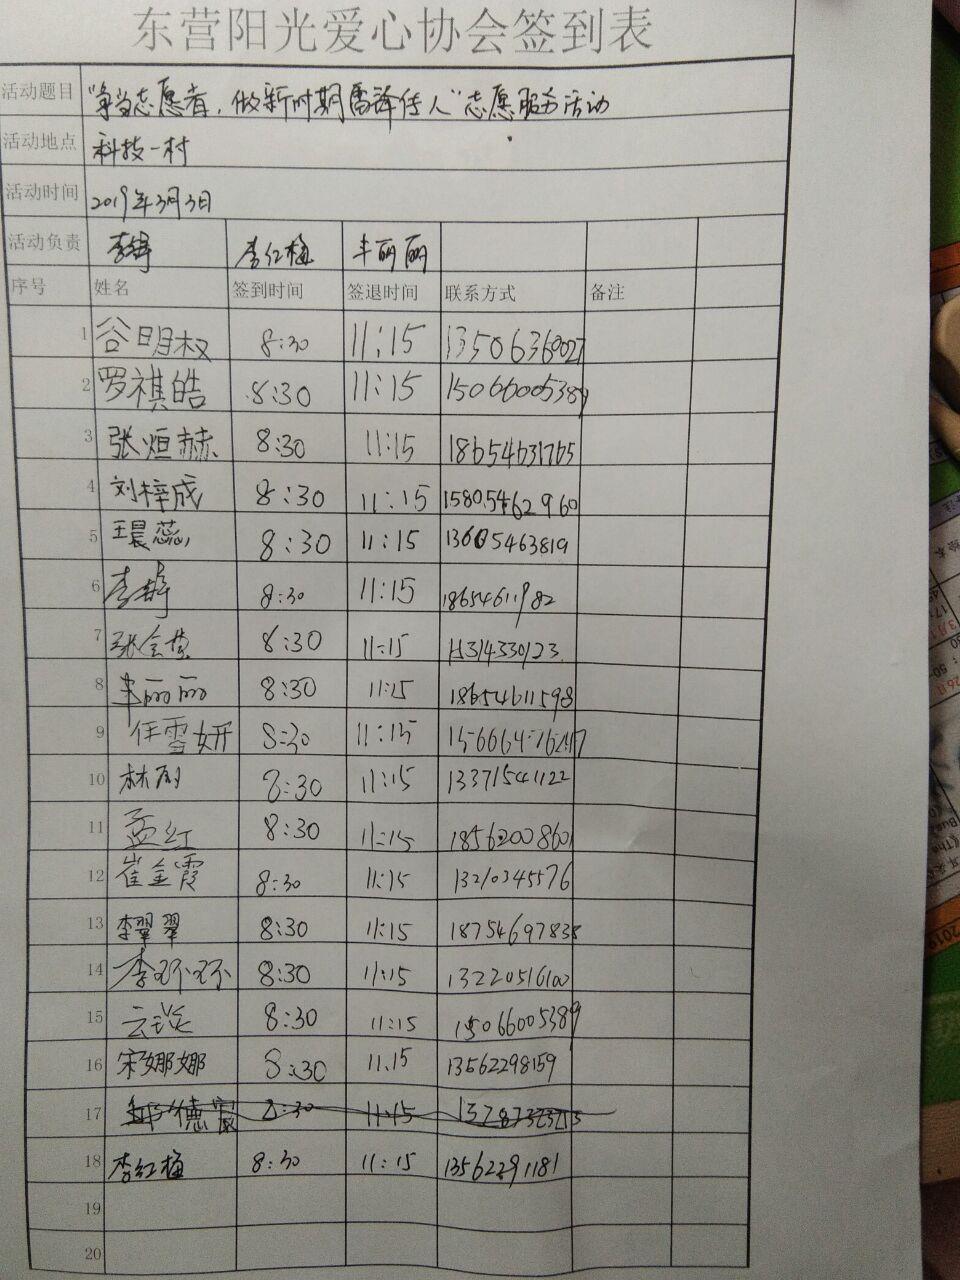 东营阳光爱心协会签到表
活动题目 "争当志愿者，做新时期雷锋传人"志愿服务活动
活动地点 科技一村
活动时间 2019年3月3日
活动负责 李锋 李红梅 丰丽丽
序号 姓名 签到时间 签退时间 联系方式 备注
1 谷明权 8:30 11:15 13506360027
2 罗祺皓 8:30 11:15 15066005389
3 张烜赫 8:30 11:15 18654631765
4 刘梓成 8:30 11:15 15805462960
5 王晨蕊 8:30 11:15 13605463819
6 李锋 8:30 11:15 18654611982
7 8:30 11:15
8 丰丽丽 8:30 11:15 18654611598
9 任雪妍 8:30 11:15
10 林雨 8:30 11:15 13371541122
11 孟红 8:30 11:15 18562008601
12 崔金霞 8:30 11:15 13210345576
13 李翠翠 8:30 11:15 18754697838
14 李环环 8:30 11:15 13220516100
15 8:30 11:15 15066005389
16 宋娜娜 8:30 11:15 13562298159
17 8:30 11:15
18 李红梅 8:30 11:15 13562291181
19
20